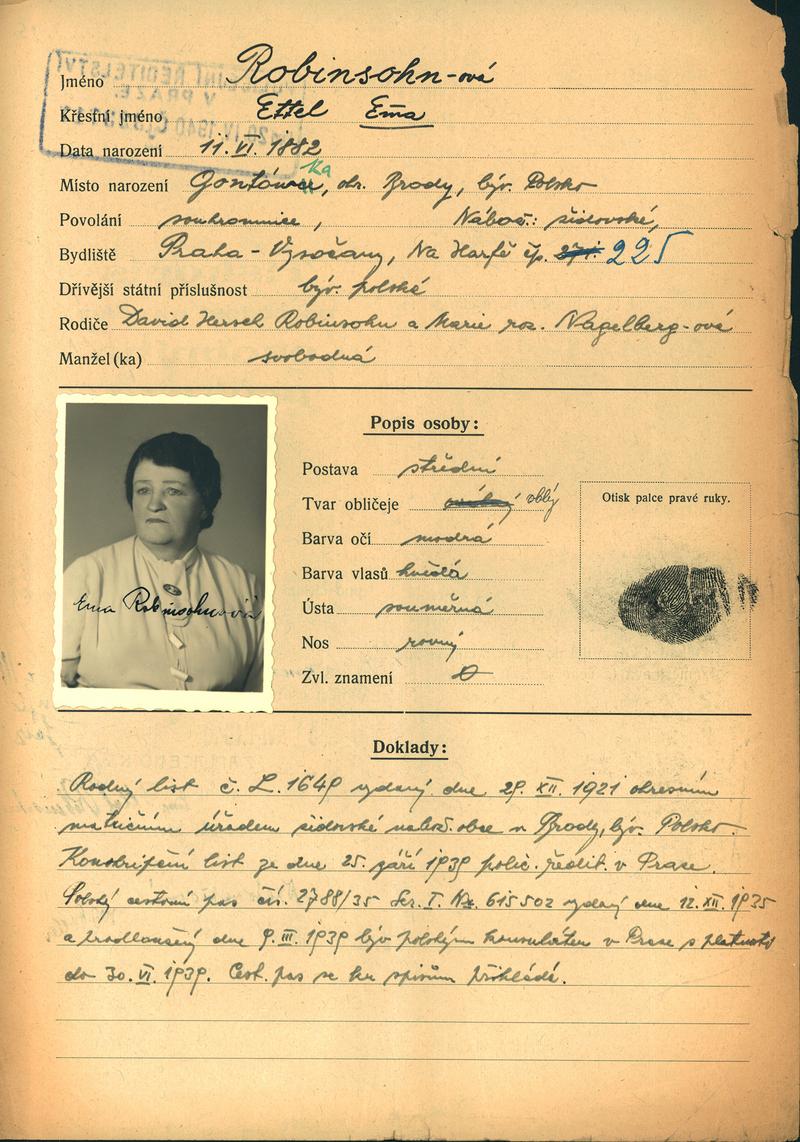 Jméno Robinsohn-ová
Křestní jméno Ettel Ema
Datum narození 11. VI. 1882
Místo narození okr. Brody, býv. Polsko
Povolání soukromnice, Nábož.: židovské,
Bydliště Praha - Vysočany, Na Harfě čp. 225
Dřívější státní příslušnost býv. polské
Rodiče David Hersch Robinsohn a Marie roz. Nagelberg-ová
Manžel (ka) svobodná
Popis osoby:
Postava střední
Tvar obličeje oblý
Barva očí modrá
Barva vlasů hnědá
Ústa souměrná
Nos rovný
Zvl. znamení 0
Otisk palce pravé ruky.
Ema Robinsohnová
Doklady:
Rodný list č. L. 1649 vydaný dne 29. XII. 1921 okresním
matričním úřadem židovské nábož. obce v Brody, býv. Polsko.
Konskripční list ze dne 25. září 1939 polic. ředit. v Praze.
cestovní pas čís. 2788/35 Ser. I. 615502 vydaný dne 12. XII. 1935
a prodloužený dne 9. III. 1939 býv. polským konsulátem v Praze s platností
do 30. VI. 1939. Cest. pas se ku spisům přikládá.